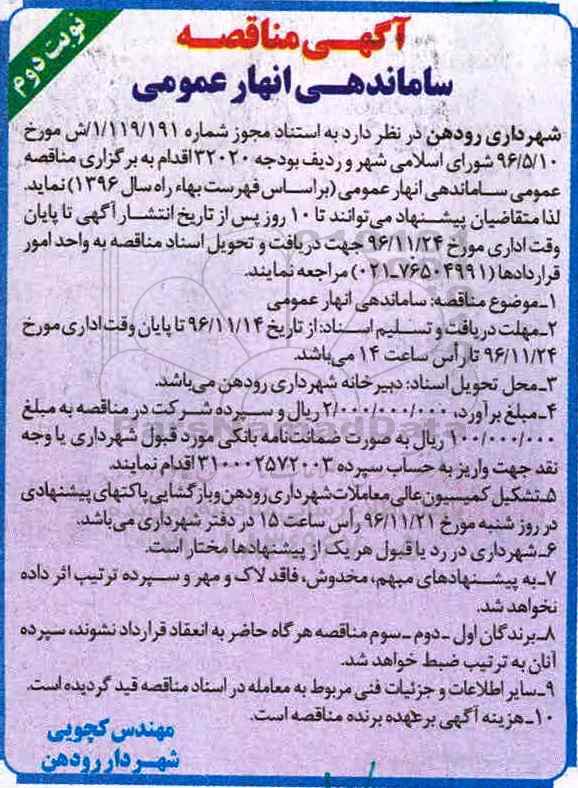 نوبت دوم
آگهی مناقصه
ساماندهی انهار عمومی
شهرداری رودهن در نظر دارد به استناد مجوز شماره ۱/۱۱۹/۱۹۱/ش مورخ
۹۶/۵/۱۰ شورای اسلامی شهر و ردیف بودجه ۳۲۰۲۰ اقدام به برگزاری مناقصه
عمومی ساماندهی انهار عمومی (براساس فهرست بهاء راه سال ۱۳۹۶) نماید.
لذا متقاضیان پیشنهاد می‌توانند تا ۱۰ روز پس از تاریخ انتشار آگهی تا پایان
وقت اداری مورخ ۹۶/۱۱/۲۴ جهت دریافت و تحویل اسناد مناقصه به واحد امور
قراردادها (۷۶۵۰۴۹۹۱-۰۲۱) مراجعه نمایند.
۱-موضوع مناقصه: ساماندهی انهار عمومی
۲-مهلت دریافت و تسلیم اسناد: از تاریخ ۹۶/۱۱/۱۴ تا پایان وقت اداری مورخ
۹۶/۱۱/۲۴ تا رأس ساعت ۱۴ می‌باشد.
۳-محل تحویل اسناد: دبیرخانه شهرداری رودهن می‌باشد.
۴-مبلغ برآورد، ۲/۰۰۰/۰۰۰/۰۰۰ ریال و سپرده شرکت در مناقصه به مبلغ
۱۰۰/۰۰۰/۰۰۰ ریال به صورت ضمانت‌نامه بانکی مورد قبول شهرداری یا وجه
نقد جهت واریز به حساب سپرده ۳۱۰۰۰۲۵۷۲۰۰۳ اقدام نمایند.
۵-تشکیل کمیسیون عالی معاملات شهرداری رودهن و بازگشایی پاکتهای پیشنهادی
در روز شنبه مورخ ۹۶/۱۱/۲۱ رأس ساعت ۱۵ در دفتر شهرداری می‌باشد.
۶-شهرداری در رد یا قبول هر یک از پیشنهادها مختار است.
۷-به پیشنهادهای مبهم، مخدوش، فاقد لاک و مهر و سپرده ترتیب اثر داده
نخواهد شد.
۸-برندگان اول -دوم -سوم مناقصه هر گاه حاضر به انعقاد قرارداد نشوند، سپرده
آنان به ترتیب ضبط خواهد شد.
۹-سایر اطلاعات و جزئیات فنی مربوط به معامله در اسناد مناقصه قید گردیده است.
۱۰-هزینه آگهی برعهده برنده مناقصه است.
مهندس کچویی
شهردار رودهن
ParsNamadData